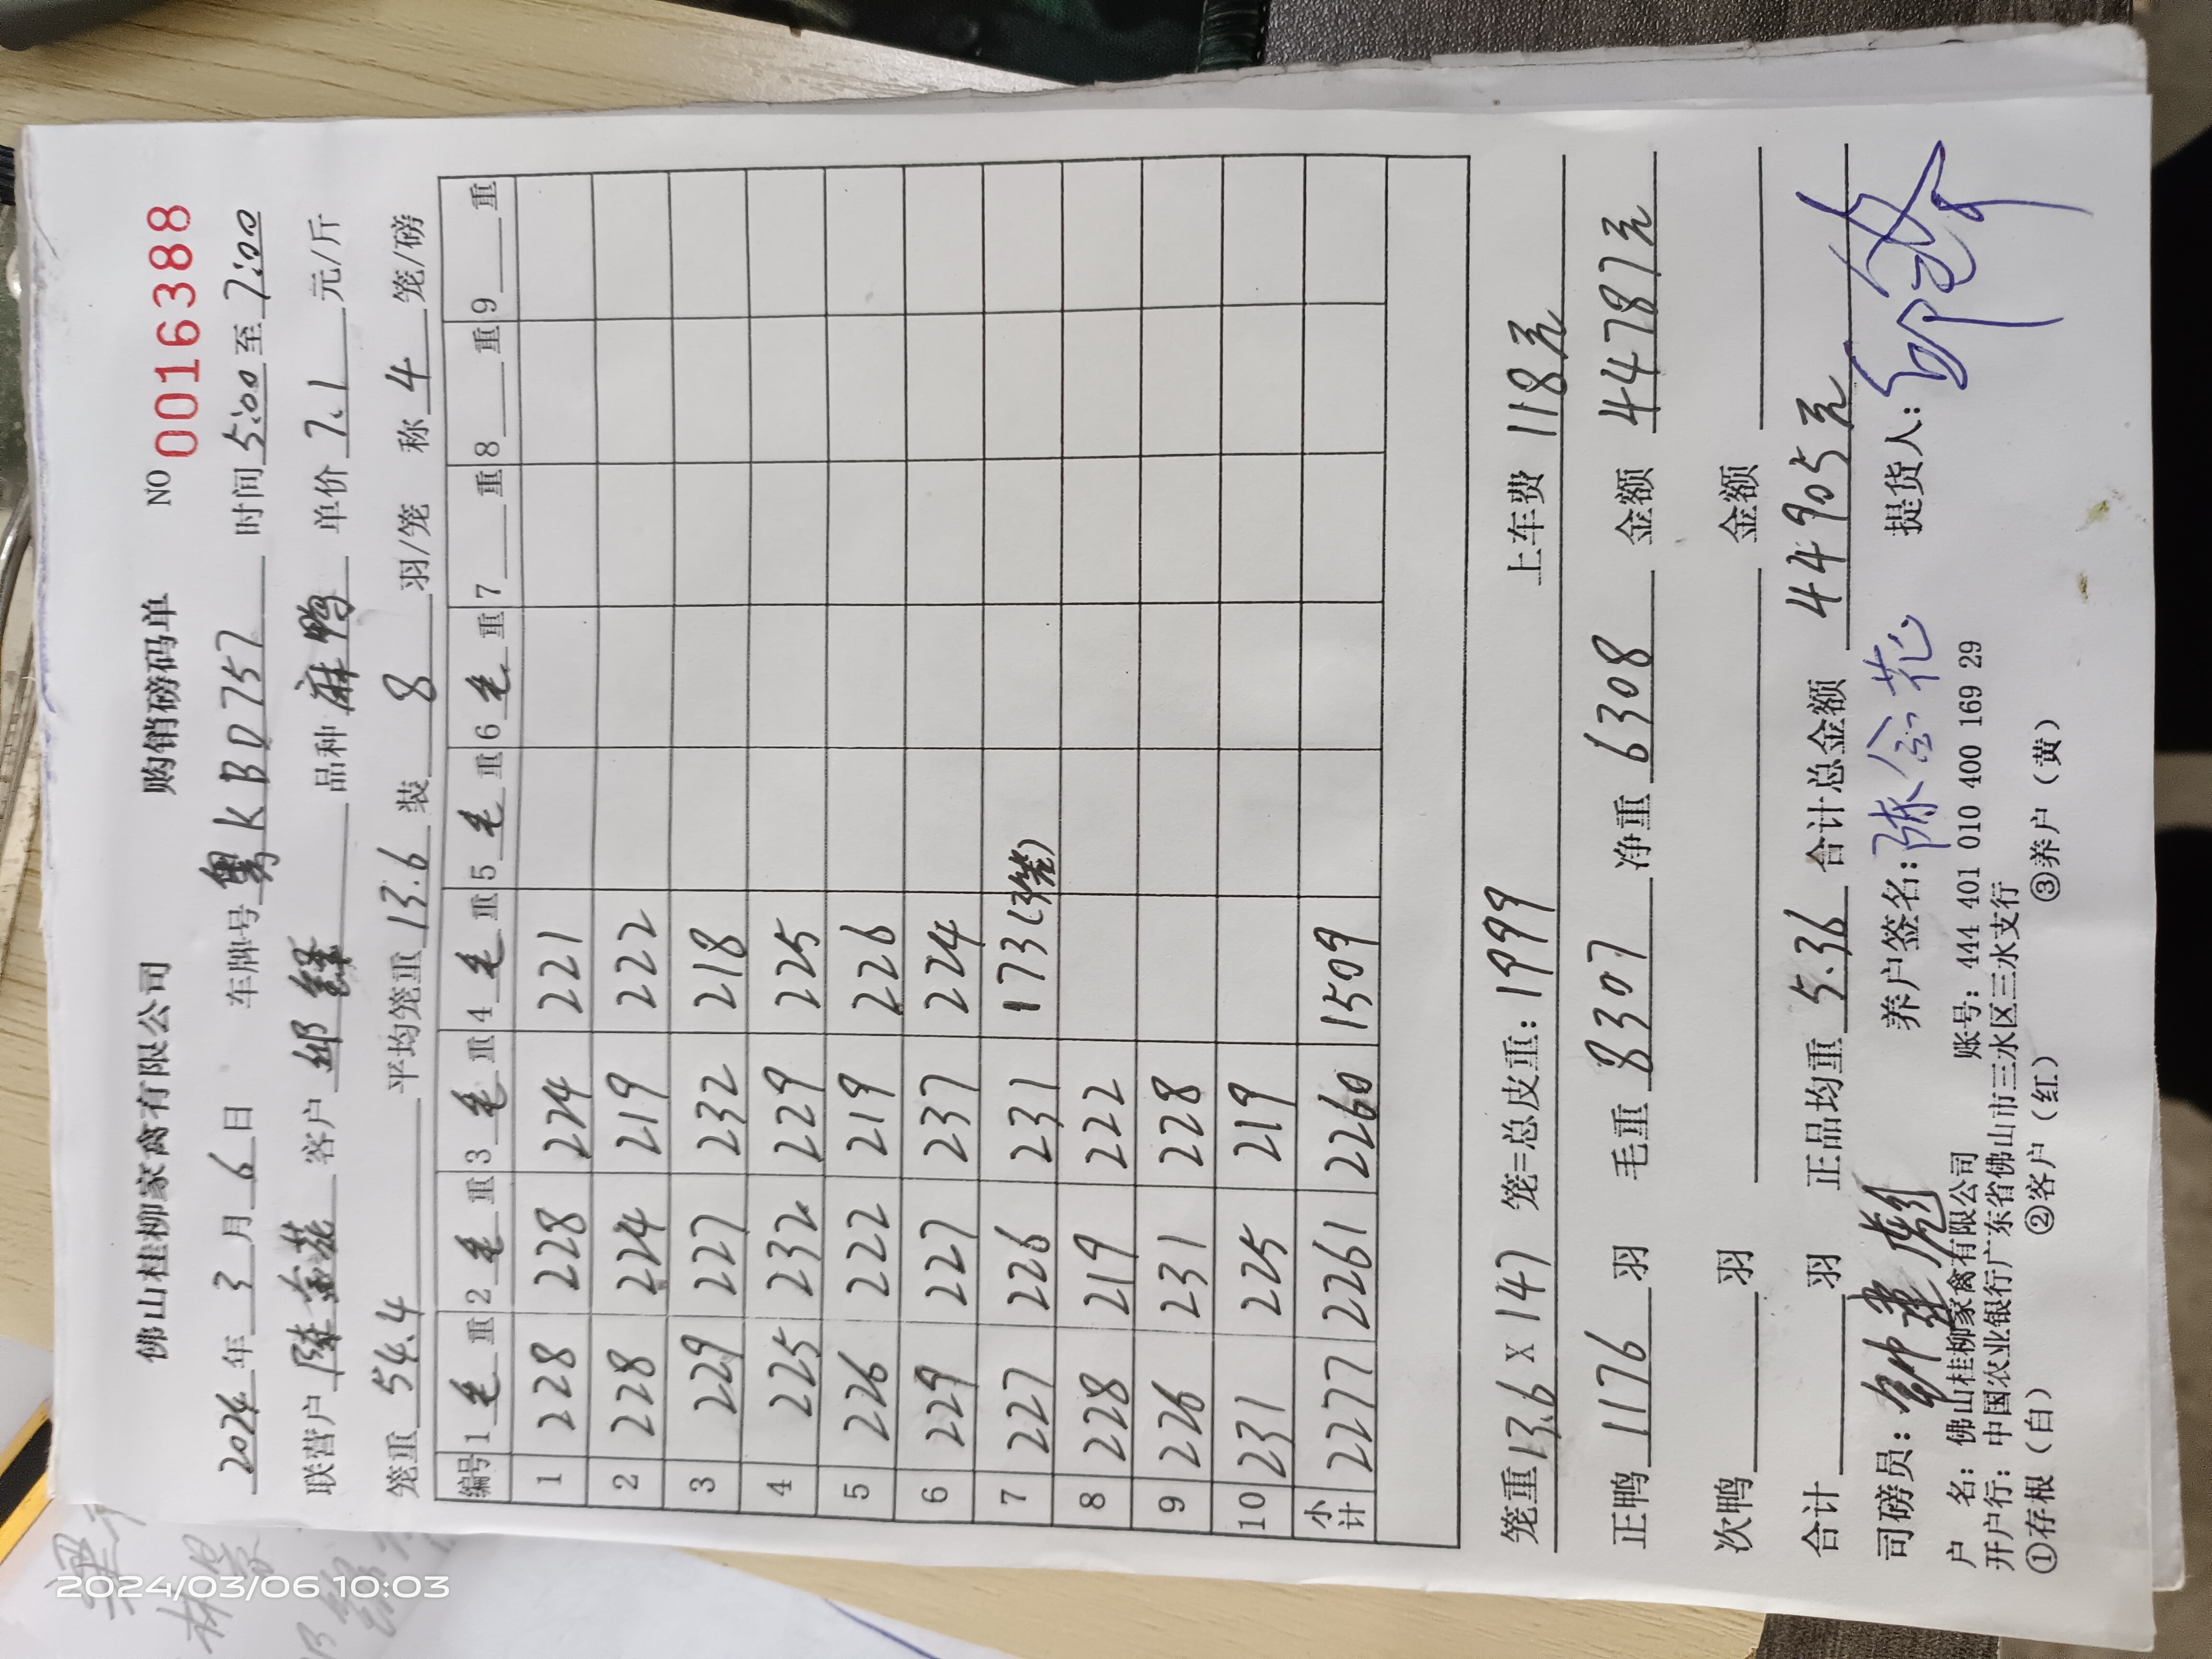 佛山桂柳家禽有限公司 购销磅码单 NO 0016388
2024年3月6日 车牌号 粤KBD757 时间 5:00 至 7:00
联营户 陈金花 客户 邓 品种 麻鸭 单价 7.1 元/斤
笼重 54.4 平均笼重 13.6 装 8 羽/笼 称 4 笼/磅
编号 1 毛 重 2 毛 重 3 毛 重 4 毛 重 5 毛 重 6 毛 重 7 重 8 重 9 重
1 228 228 224 221
2 228 224 219 222
3 229 227 232 218
4 225 232 229 225
5 226 222 219 226
6 229 227 237 224
7 227 226 231 173(3笼)
8 228 219 222
9 226 231 228
10 231 225 219
小计 2277 2261 2260 1509
笼重 13.6 X 147 笼=总皮重: 1999 上车费 118元
正鸭 1176 羽 毛重 8307 净重 6308 金额 44787元
次鸭 羽 金额
合计 羽 正品均重 5.36 合计总金额 44905元
司磅员: 养户签名: 陈金花 提货人:
户 名: 佛山桂柳家禽有限公司 账号: 444 401 010 400 169 29
开户行: 中国农业银行广东省佛山市三水区三水支行
①存根(白) ②客户(红) ③养户(黄)
2024/03/06 10:03